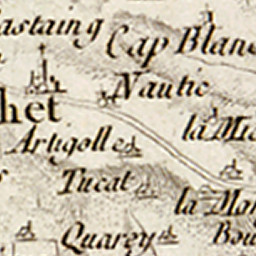 astaing
Cap Blanc
Nautic
het
Artigolle
la Mi
Tucat
la Mo
Quarey
Bou